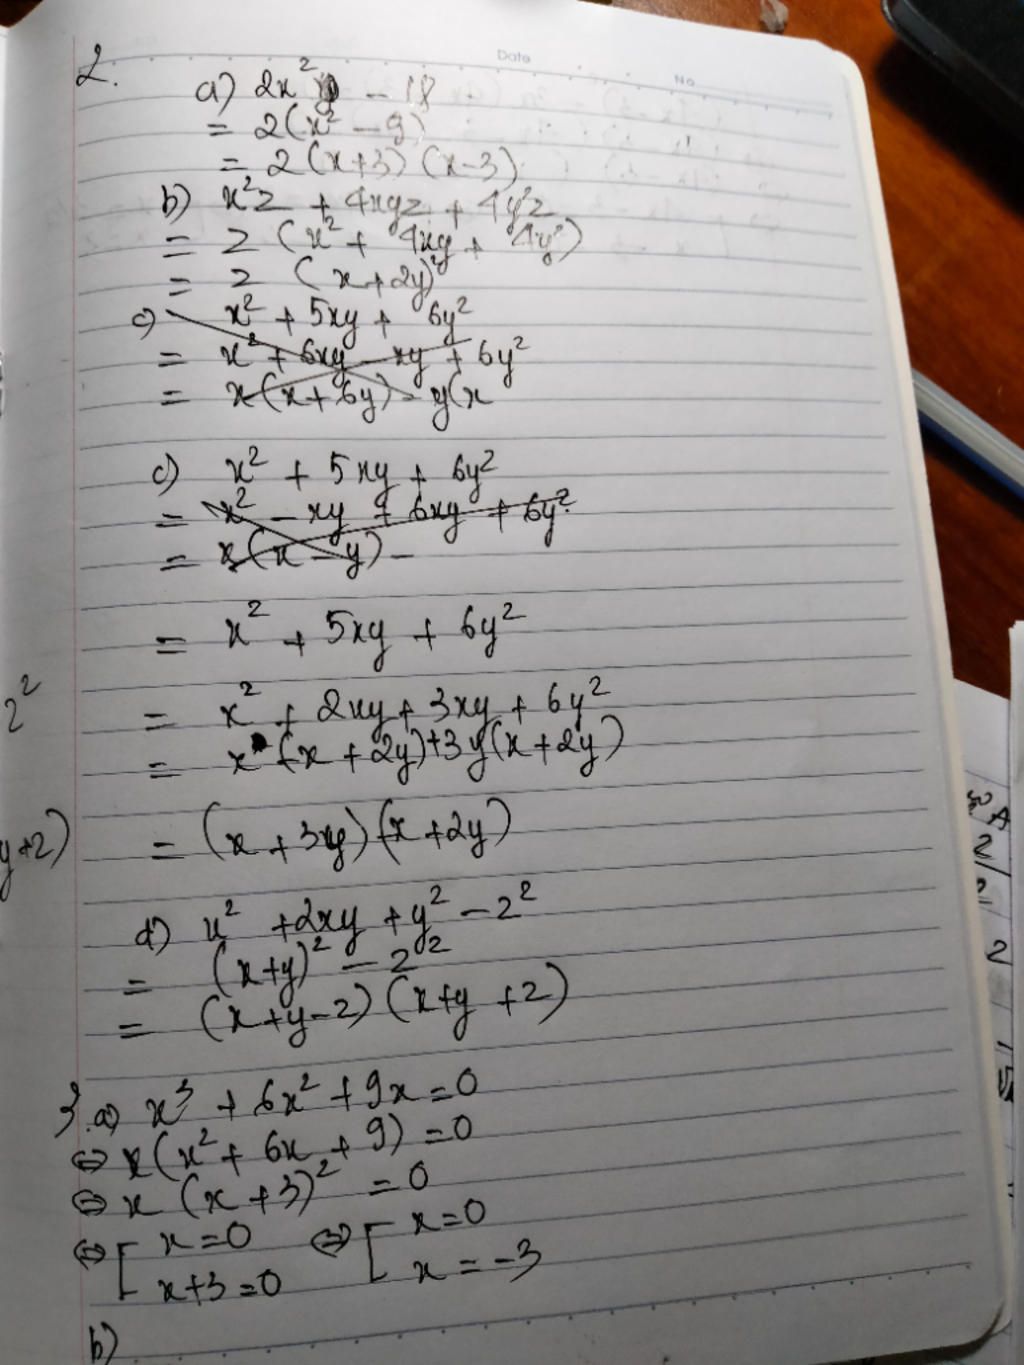 Date
No
2.
a) 2x² - 18
= 2(x² - 9)
= 2(x+3)(x-3)
b) x²z + 4xyz + 4y²z
= z (x² + 4xy + 4y²)
= z (x+2y)²
c) x² + 5xy + 6y²
= x² + 6xy - xy + 6y²
= x(x+6y) - y(x
c) x² + 5xy + 6y²
= x² - xy + 6xy + 6y²
= x(x-y) -
= x² + 5xy + 6y²
= x² + 2xy + 3xy + 6y²
= x (x + 2y) + 3y(x+2y)
= (x + 3y)(x+2y)
d) x² + 2xy + y² - 2²
= (x+y)² - 2²
= (x+y-2)(x+y+2)
3. a) x³ + 6x² + 9x = 0
⇔ x(x² + 6x + 9) = 0
⇔ x (x+3)² = 0
⇔ [ x = 0 ⇔ [ x = 0
x+3 = 0 x = -3
b)
2²
y+2)